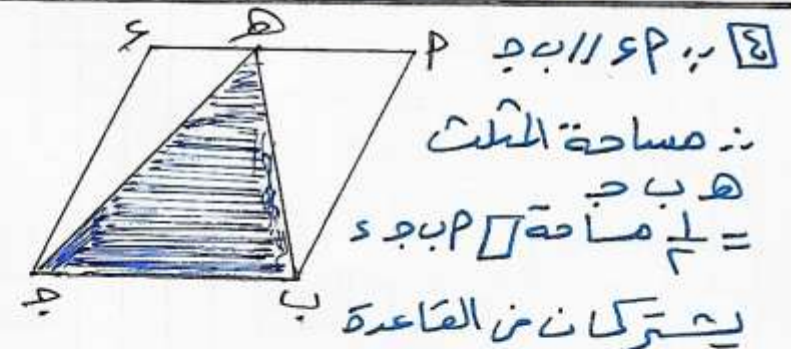 ٤ ∵ ٩ء // ب ج
∴ مساحة المثلث
ه ب ج
= ١/٢ مساحة ▱ ٩ ب ج ء
يشتركان في القاعدة
ء ه ٩
ج ب